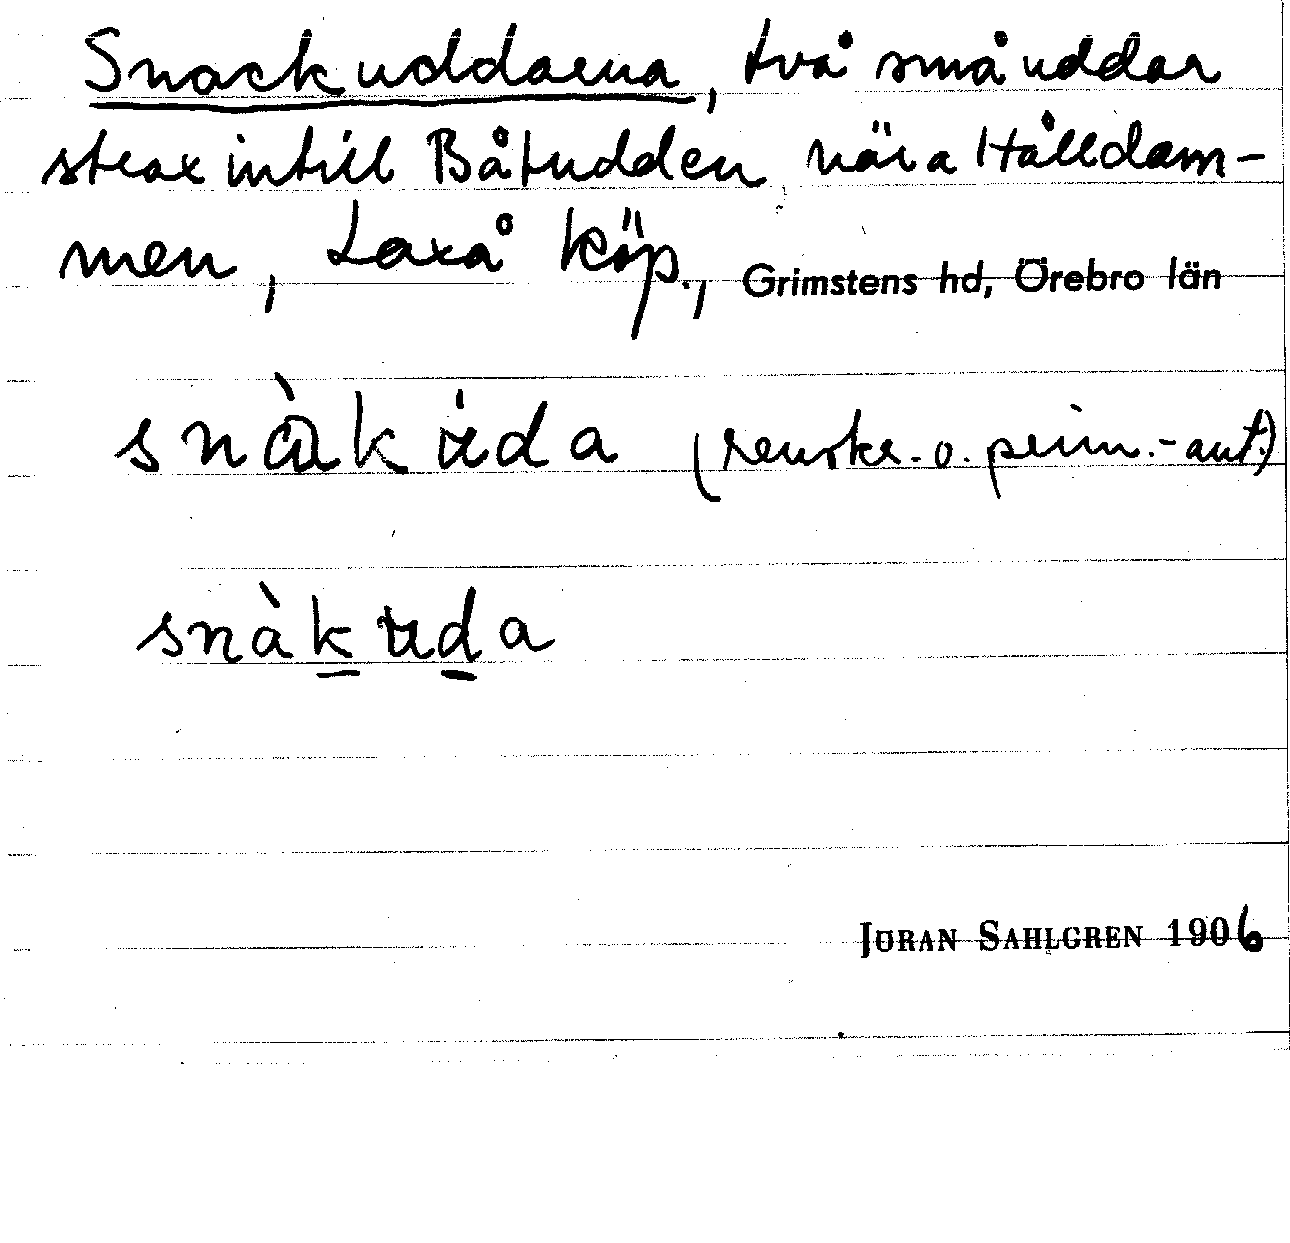 Snackuddarna, två små uddar
strax intill Båtudden nära Hålldam-
men, Laxå köp., Grimstens hd, Örebro län
snàkuda (renskr. o. prim.-ant.)
snàkuda
JÖRAN SAHLGREN 1906